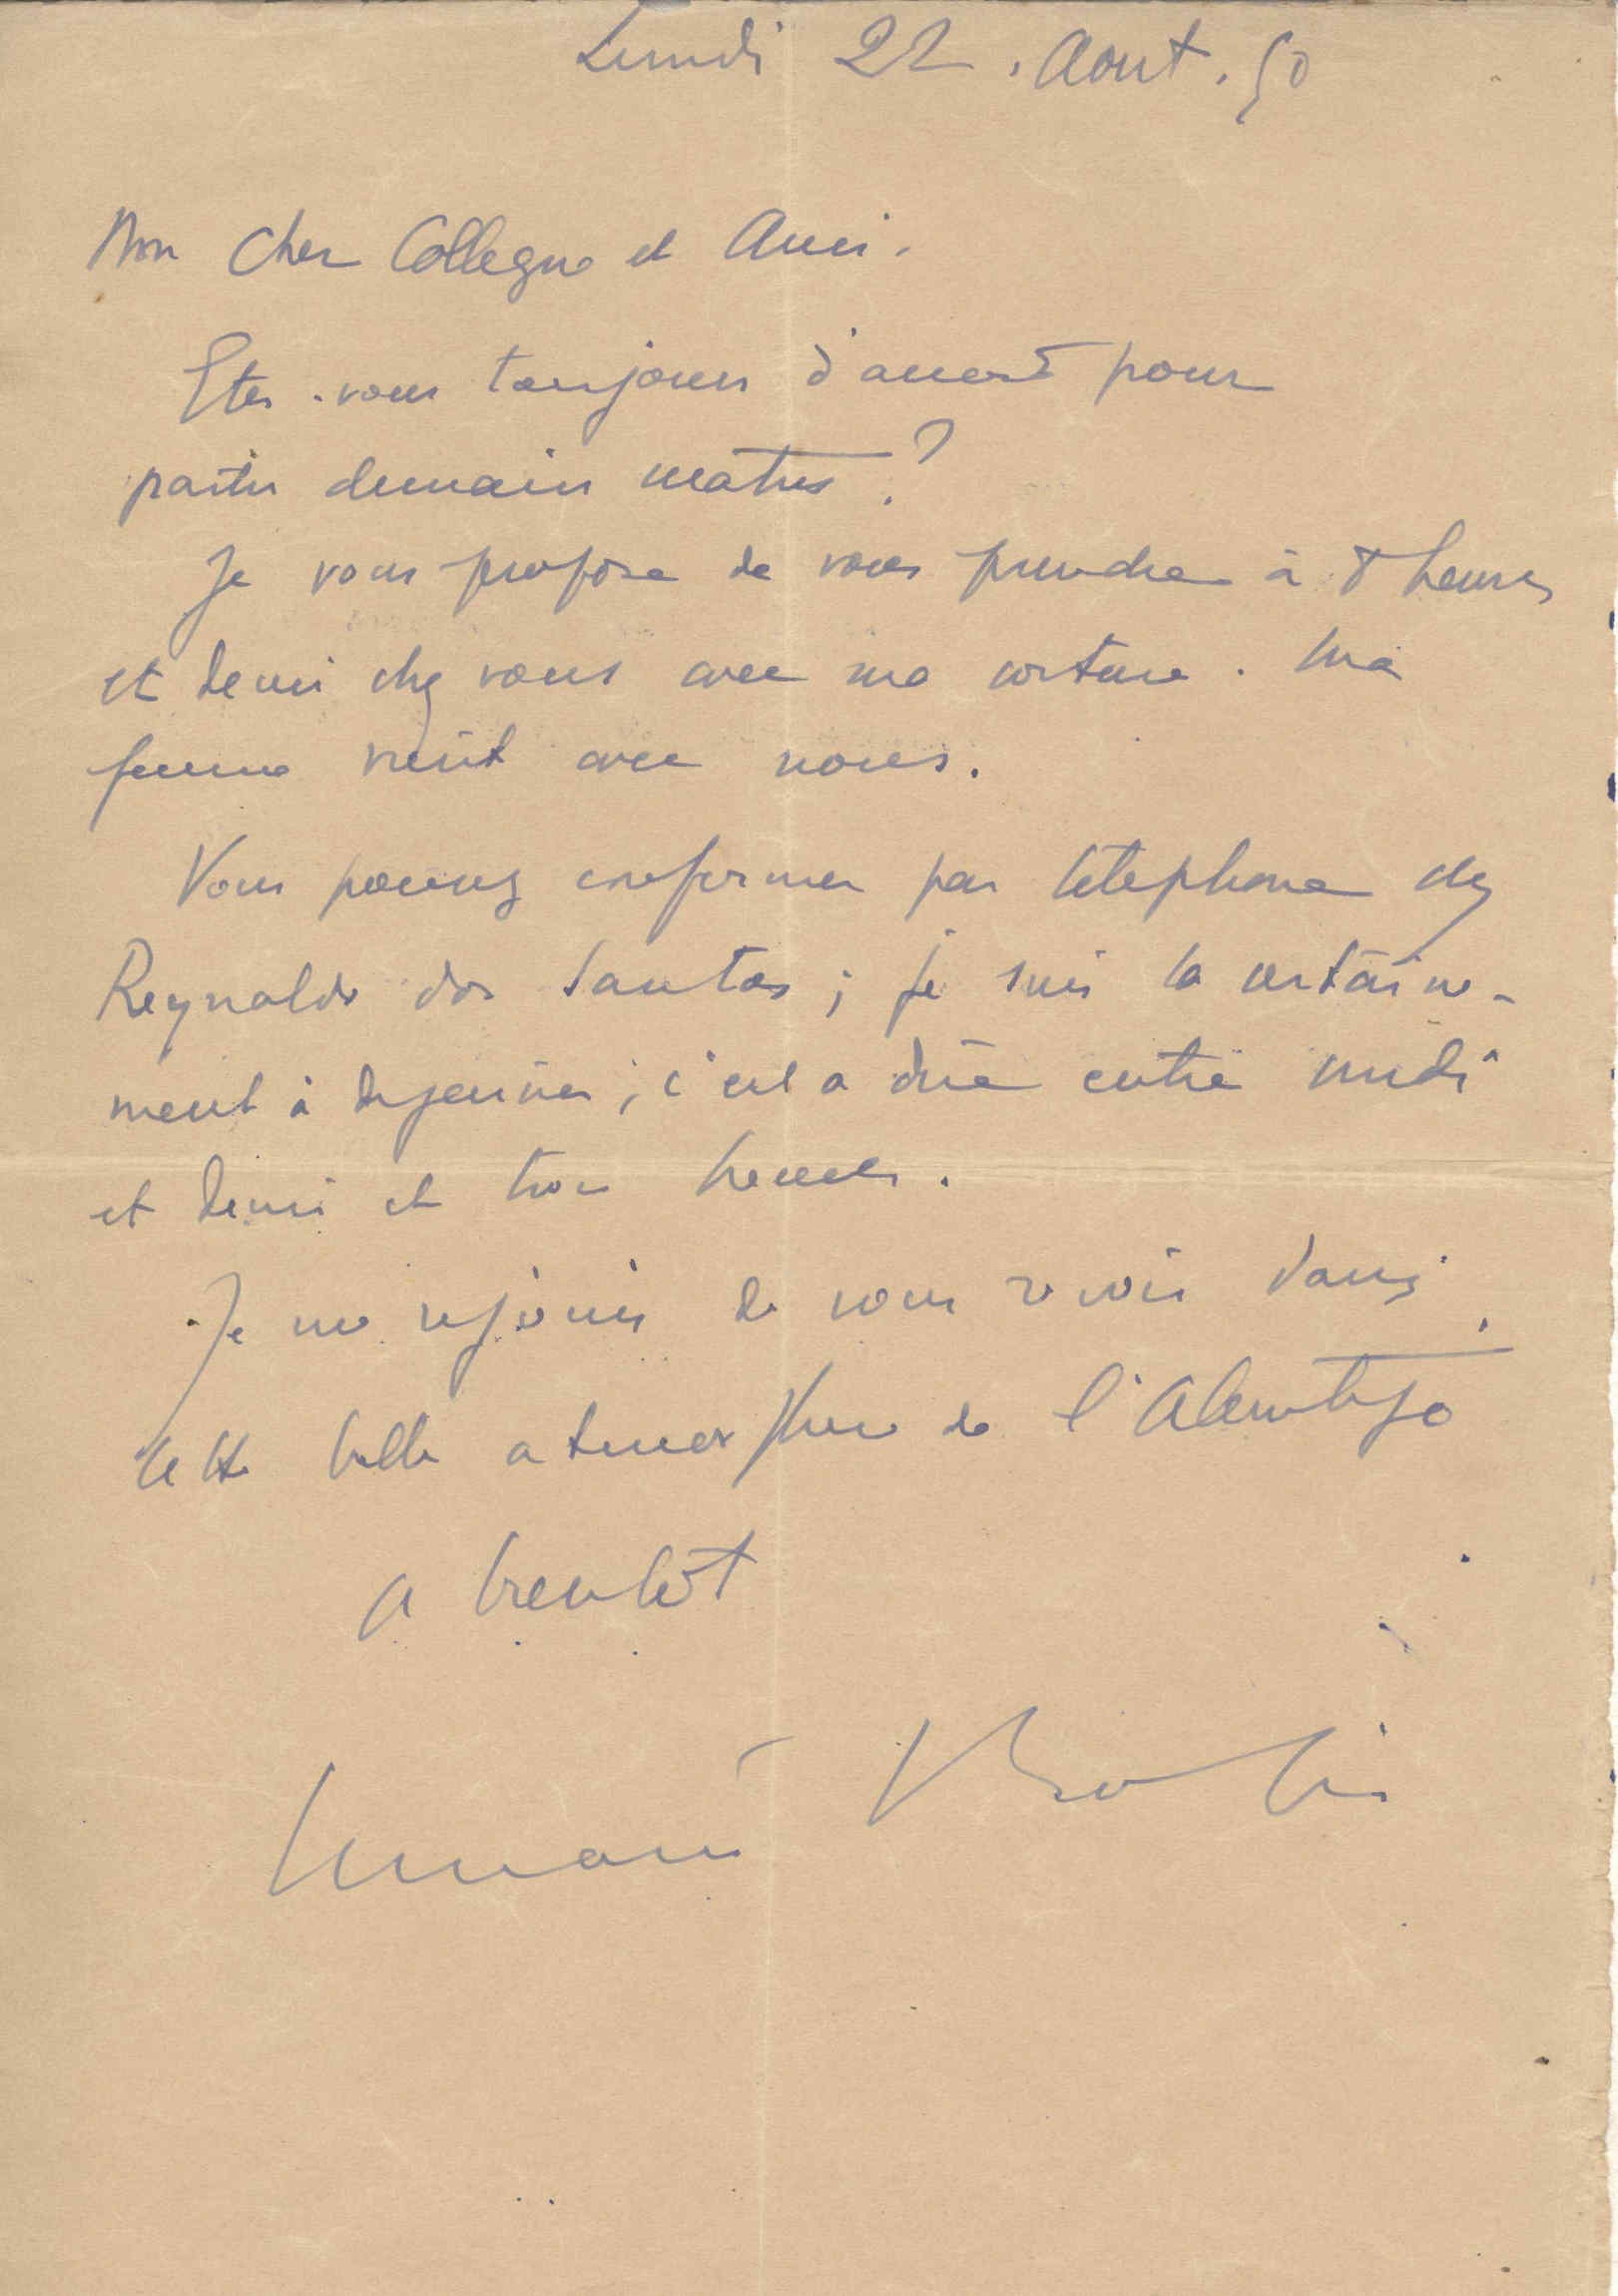 Lundi 22. Aout. 50
Mon Cher Collegue et Ami.
Etes-vous toujours d'accord pour
partir demain matin ?
Je vous propose de vous prendre à 8 heures
et demi chez vous avec ma voiture. Ma
femme vient avec nous.
Vous pouvez confirmer par telephone chez
Reynaldo dos Santos ; je suis la certaine-
ment à dejeuner ; c'est a dire entre midi
et demi et trois heures.
Je me rejouis de vous revoir dans
cette belle atmosphere de l'Alemtejo
a bientôt